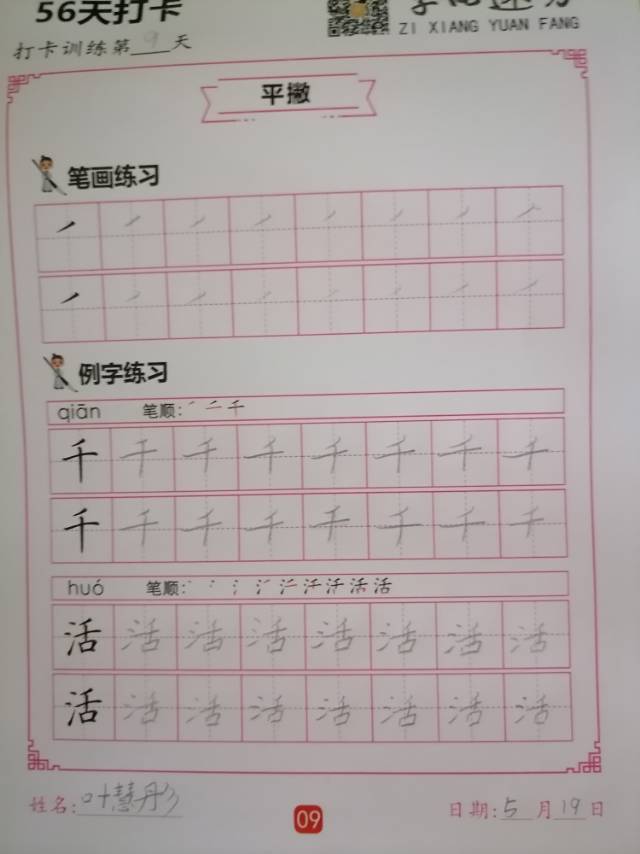 56天打卡
ZI XIANG YUAN FANG
打卡训练第9天
平撇
笔画练习
例字练习
qiān 笔顺: ㇒ 二 千
千 千 千 千 千 千 千 千
千 千 千 千 千 千 千 千
huó 笔顺: 活
活 活 活 活 活 活 活 活
活 活 活 活 活 活 活 活
姓名: 叶慧彤
09
日期: 5月19日